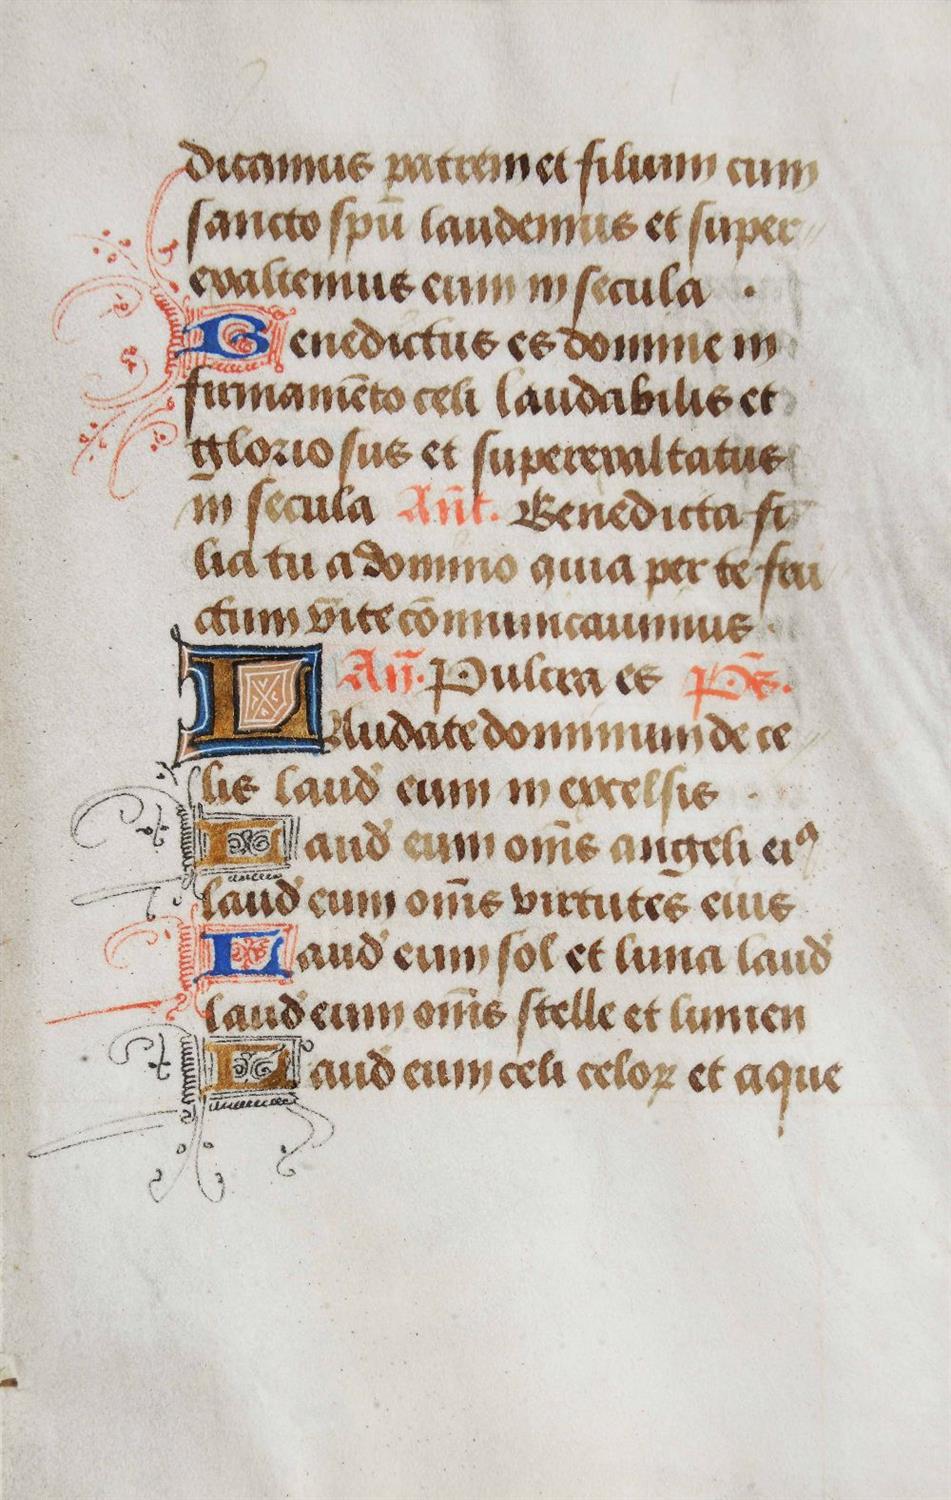 dicamus patrem et filium cum
sancto spū laudemus et super
exaltemus eum in secula .
Benedictus es domine in
firmamēto celi laudabilis et
gloriosus et superexaltatus
in secula Añt. Benedicta fi
lia tu a domino quia per te fru
ctum vite cōmunicauimus .
Añ. Pulcra es Ps̄.
Laudate dominum de ce
lis laud' eum in excelsis .
Laud' eum om̄s angeli eiꝰ
laud' eum om̄s virtutes eius
Laud' eum sol et luna laud'
laud' eum om̄s stelle et lumen
Laud' eum celi celoꝝ et aque